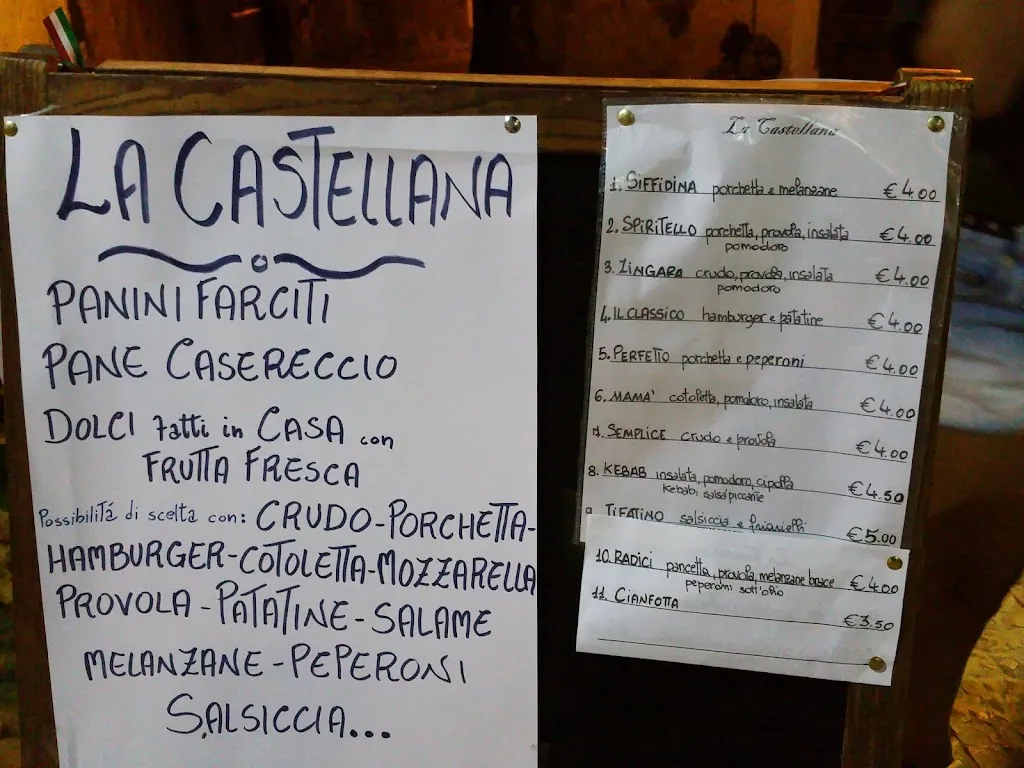 LA CASTELLANA
PANINI FARCITI
PANE CASERECCIO
DOLCI fatti in CASA con
FRUTTA FRESCA
Possibilitá di scelta con: CRUDO-PORCHETTA-
HAMBURGER-COTOLETTA-MOZZARELLA
PROVOLA-PATATINE-SALAME
MELANZANE-PEPERONI
SALSICCIA...
La Castellana
1. SIFFIDINA porchetta e melanzane €4.00
2. SPIRITELLO porchetta, provola, insalata €4.00
pomodoro
3. ZINGARA crudo, provola, insalata €4.00
pomodoro
4. IL CLASSICO hamburger e patatine €4.00
5. PERFETTO porchetta e peperoni €4.00
6. MAMA' cotoletta, pomodoro, insalata €4.00
7. SEMPLICE crudo e provola €4.00
8. KEBAB insalata, pomodoro, cipolla €4.50
kebab, salsa piccante
9 TIFATINO salsiccia e friarielli €5.00
10. RADICI pancetta, provola, melanzane brace €4.00
peperoni sott'olio
11. CIANFOTTA €3.50